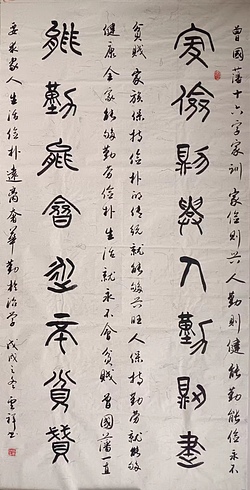 曾國藩十六字家訓 家儉則兴 人勤則健 能勤能儉 永不
家儉則興人勤則健
貧賤 家族保持儉朴的傳統就能够兴旺 人保持勤勞就能够
健康 全家能够勤勞儉朴 生活就永不會貧賤 曾國藩一直
能勤能儉永不貧賤
要求家人生活儉朴遠离奢華 勤於治學 戊戌之冬雲祥書